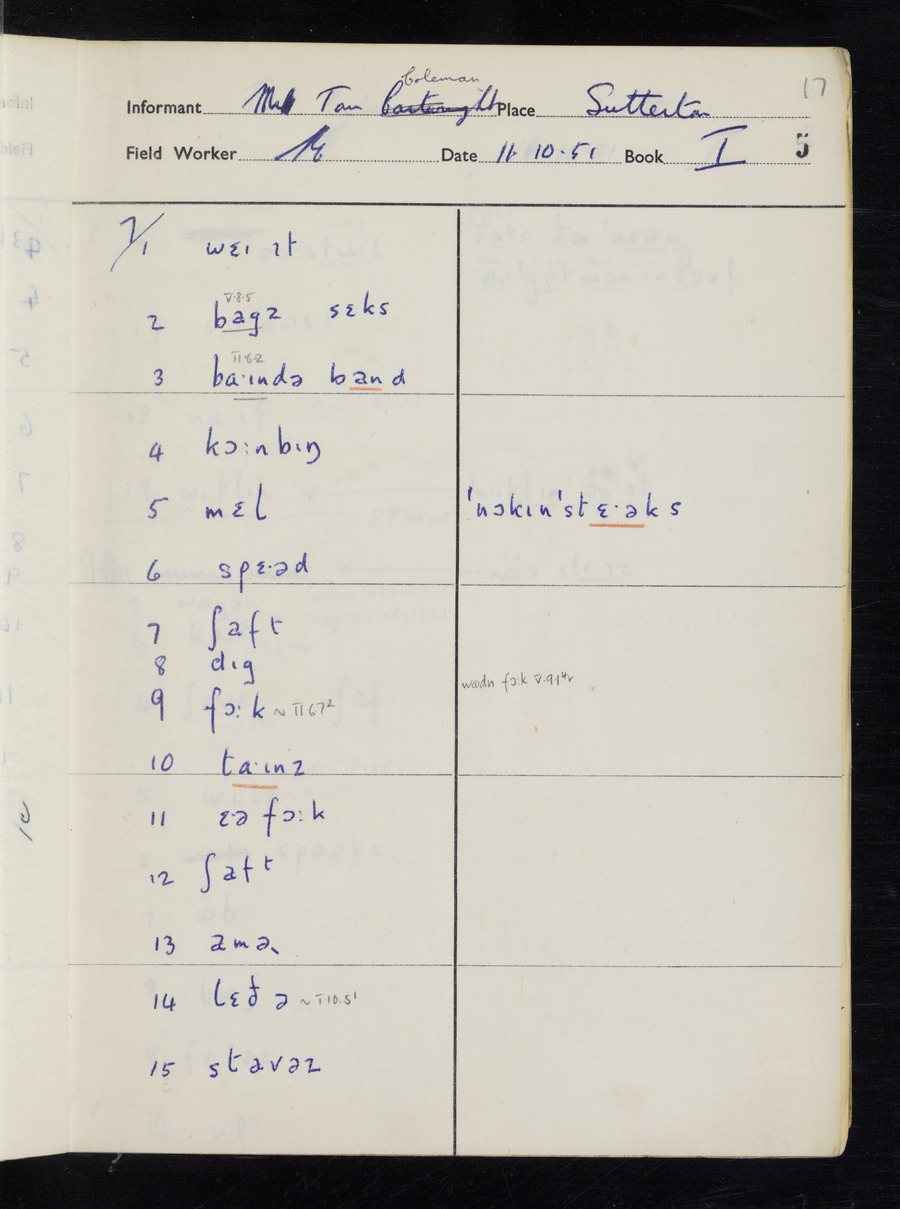 17
Coleman
Informant Mr Tom Cartwright Place Sutterton
Field Worker Date 11.10.51 Book I 5
7/1 wɛɪ ɪt
V.8.5
2 bagz sɛks
II 6 2
3 ba·ɪndə band
4 kɔ:nbɪŋ
5 mɛl 'nɔkɪn'stɛ·əks
6 spɛ·əd
7 ʃaft
8 dɪg
9 fɔ:k ~ II 6 7 2 wʊdn fɔ:k V.9.14
10 ta·ɪnz
11 ɛə fɔ:k
12 ʃaft
13 amə
14 lɛðə ~ I 10.5 1
15 stavəz